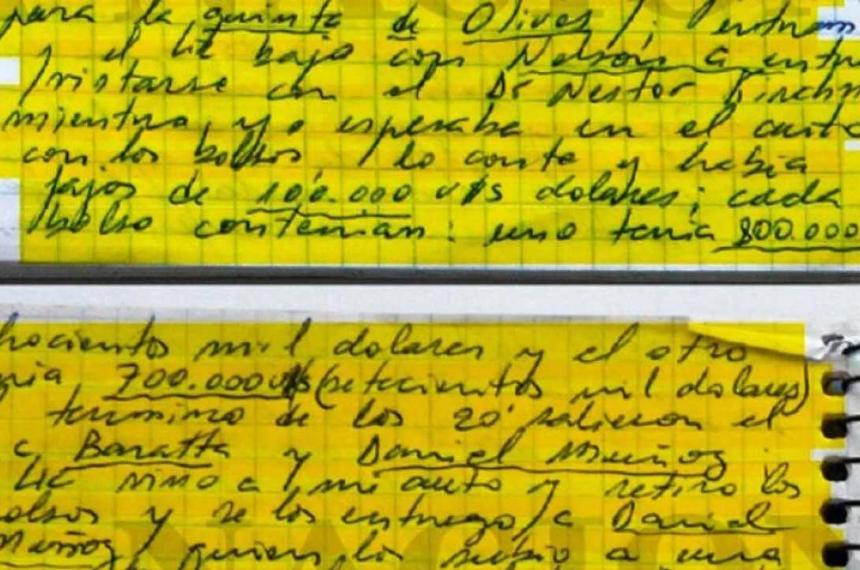 para la quinta de Olivos/; entram
y el Lic bajo con Nelson G entre
/vistarse con el Dr Nestor Kirchn
mientra, yo esperaba en el auto
con los bolsos / lo conte y habia
fajos de 100.000 u/s dolares; cada
bolso contenian: uno tenia 800.000
hocientos mil dolares y el otro
nia 700.000 u/s (setecientos mil dolares)
termino de los 20' salieron el
c, Baratta y Daniel Muñoz
Lic vino a / mi auto y retiro los
olsos y se los entrego /a Daniel
Muñoz/ quien los subio a una
NACION